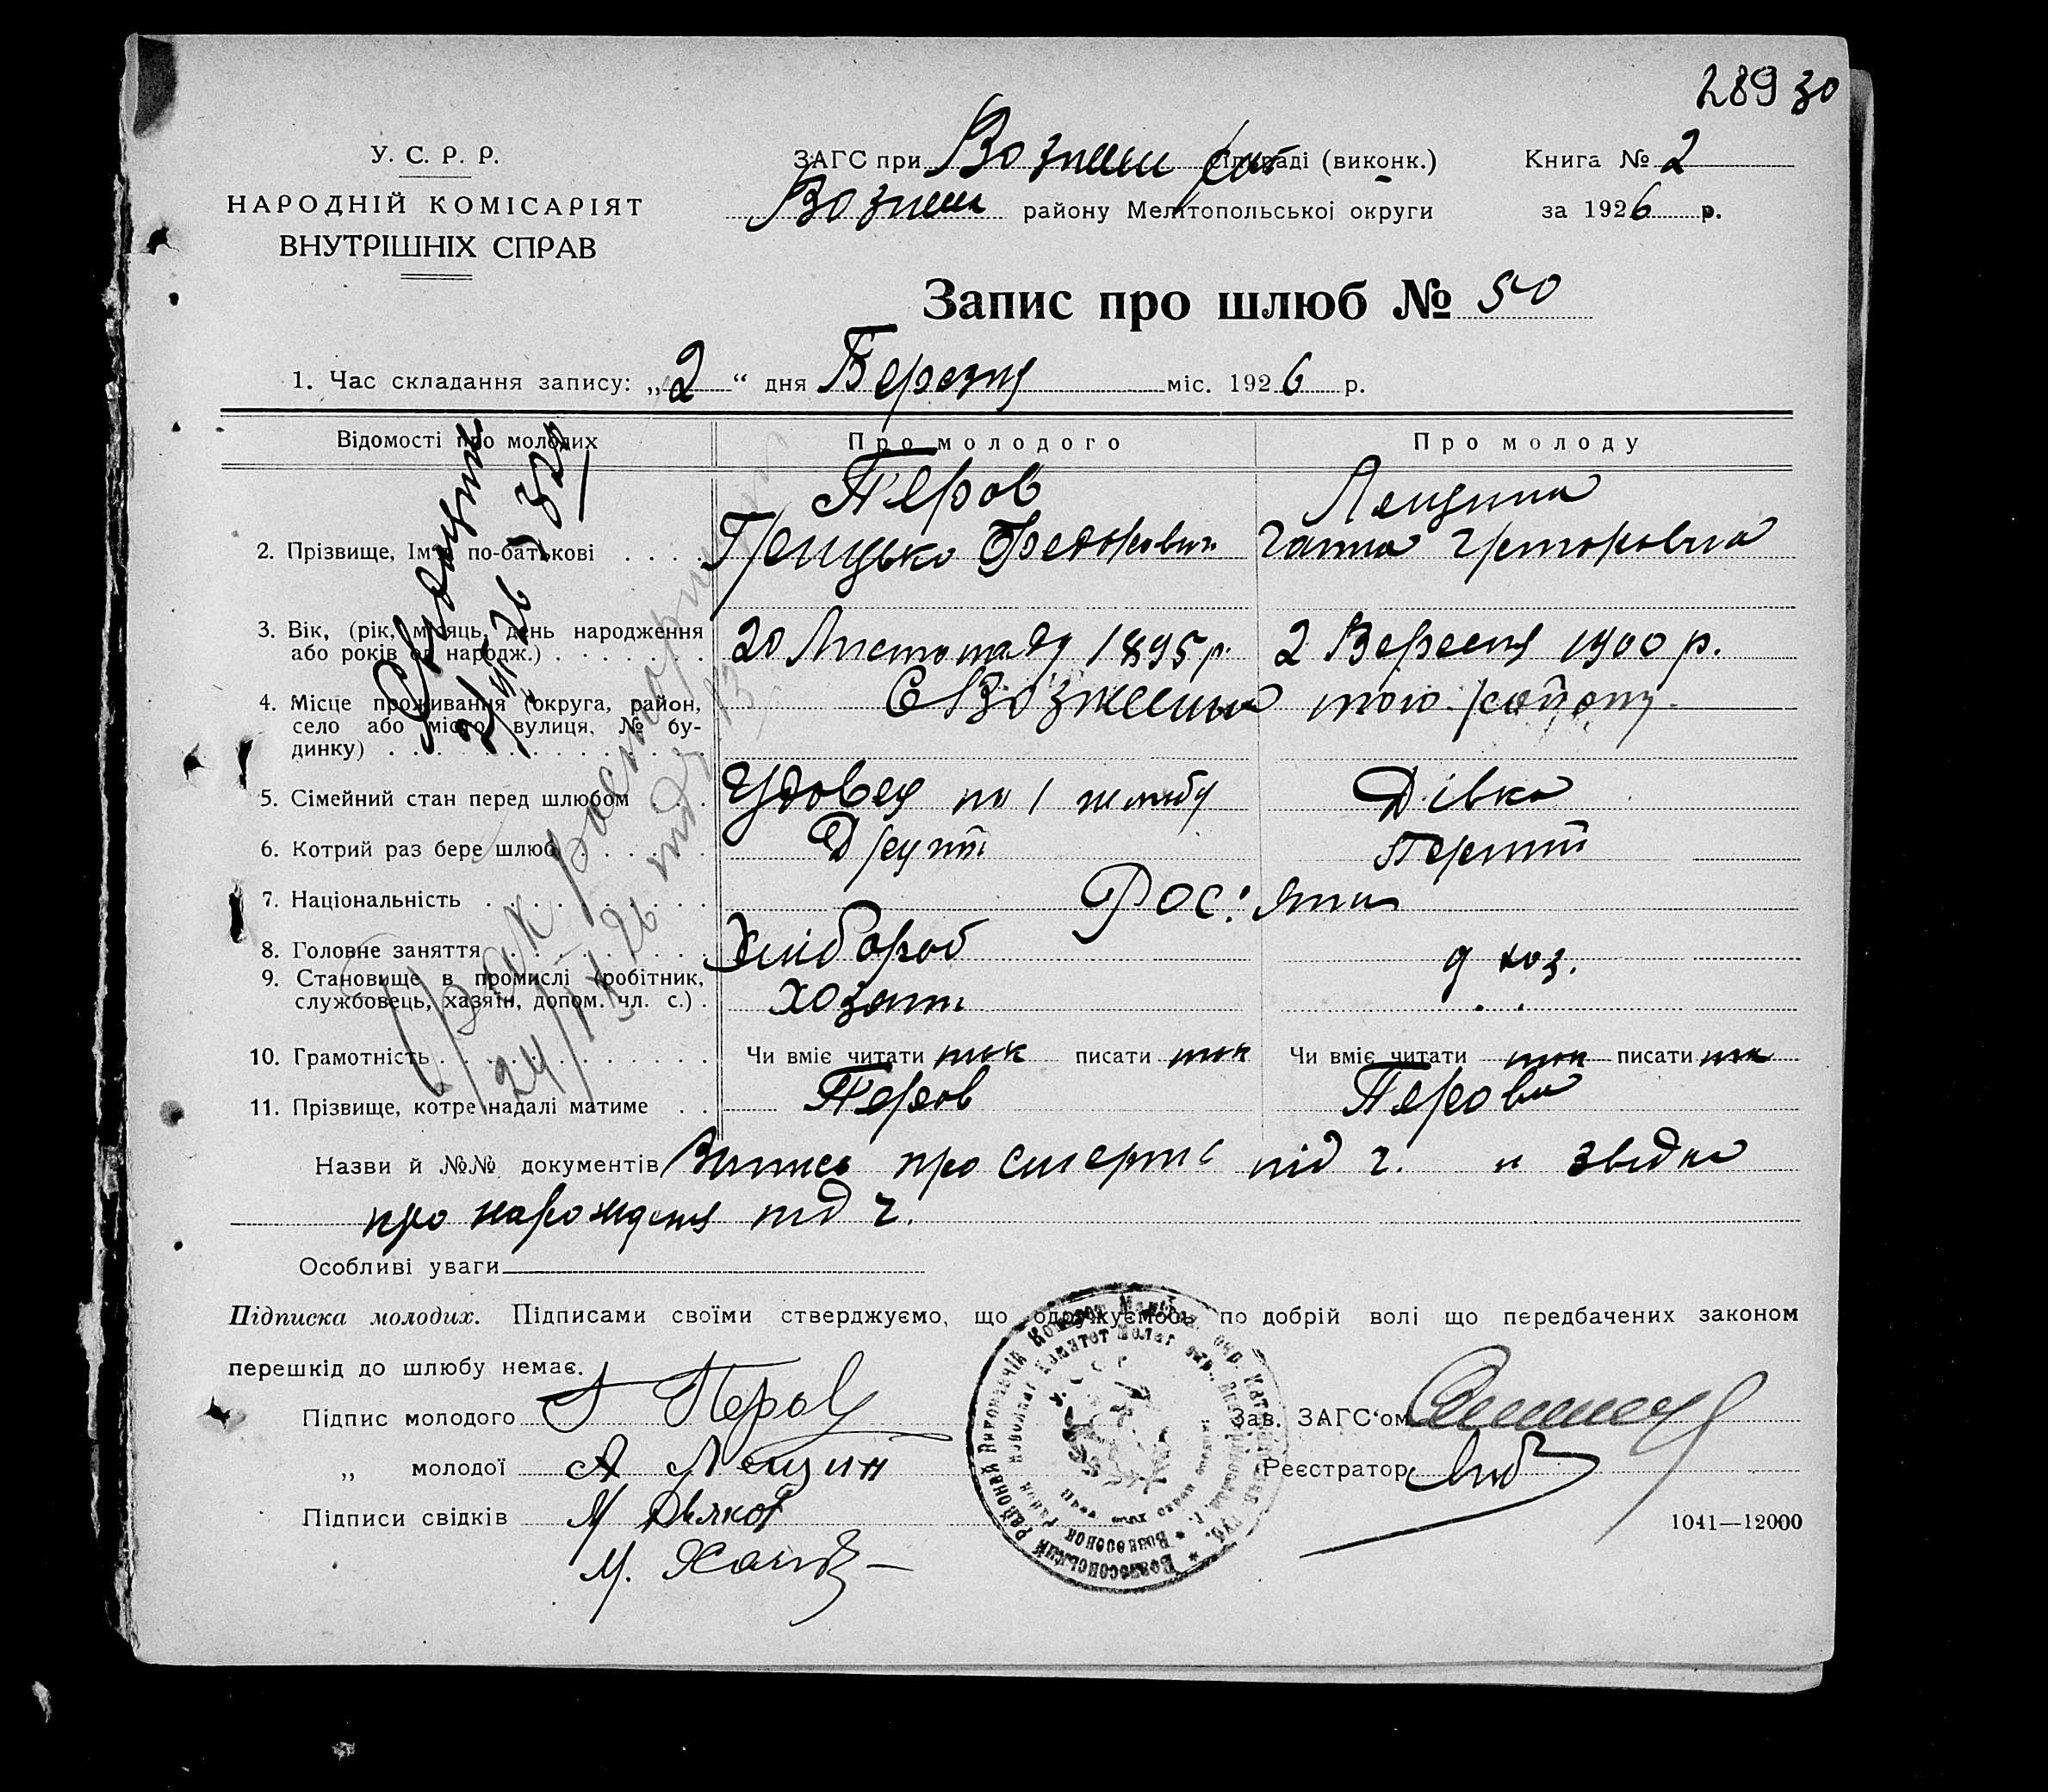 289 30
У. С. Р. Р.
НАРОДНІЙ КОМІСАРІЯТ
ВНУТРІШНІХ СПРАВ
ЗАГС при Возне (виконк.)
Возне району Мелітопольської округи
Книга № 2
за 1926 р.
Запис про шлюб № 50
1. Час складання запису: „2“ дня Березня міс. 1926 р.
Відомості про молодих Про молодого Про молоду
Перов Лещина
2. Прізвище, Ім'я по-батькові Грицько Федорович Ганна
3. Вік, (рік, місяць, день народження
або років од народж.) 20 Листопаду 1895 р. 2 Вересня 1900 р.
4. Місце проживання (округа, район,
село або місто, вулиця, № бу-
динку) того району
5. Сімейний стан перед шлюбом Удовец по 1 шлюбу Дівка
6. Котрий раз бере шлюб Другий Перший
7. Національність Рос:яни
8. Головне заняття Хлібороб д хоз.
9. Становище в промислі (робітник,
службовець, хазяїн, допом. чл. с.) хозяин
10. Грамотність Чи вміє читати так писати так Чи вміє читати так писати так
11. Прізвище, котре надалі матиме Перов Перова
Назви й №№ документів Випись про смерть під ч. и звідка
про нарождення під ч.
Особливі уваги
Підписка молодих. Підписами своїми стверджуємо, що одружуємось по добрій волі що передбачених законом
перешкід до шлюбу немає.
Підпис молодого Г Перов
Зав. ЗАГС'ом
„ молодої А Лещин
Реєстратор
Підписи свідків М
М.
1041—12000
Брак расторгнут
24/IX 26